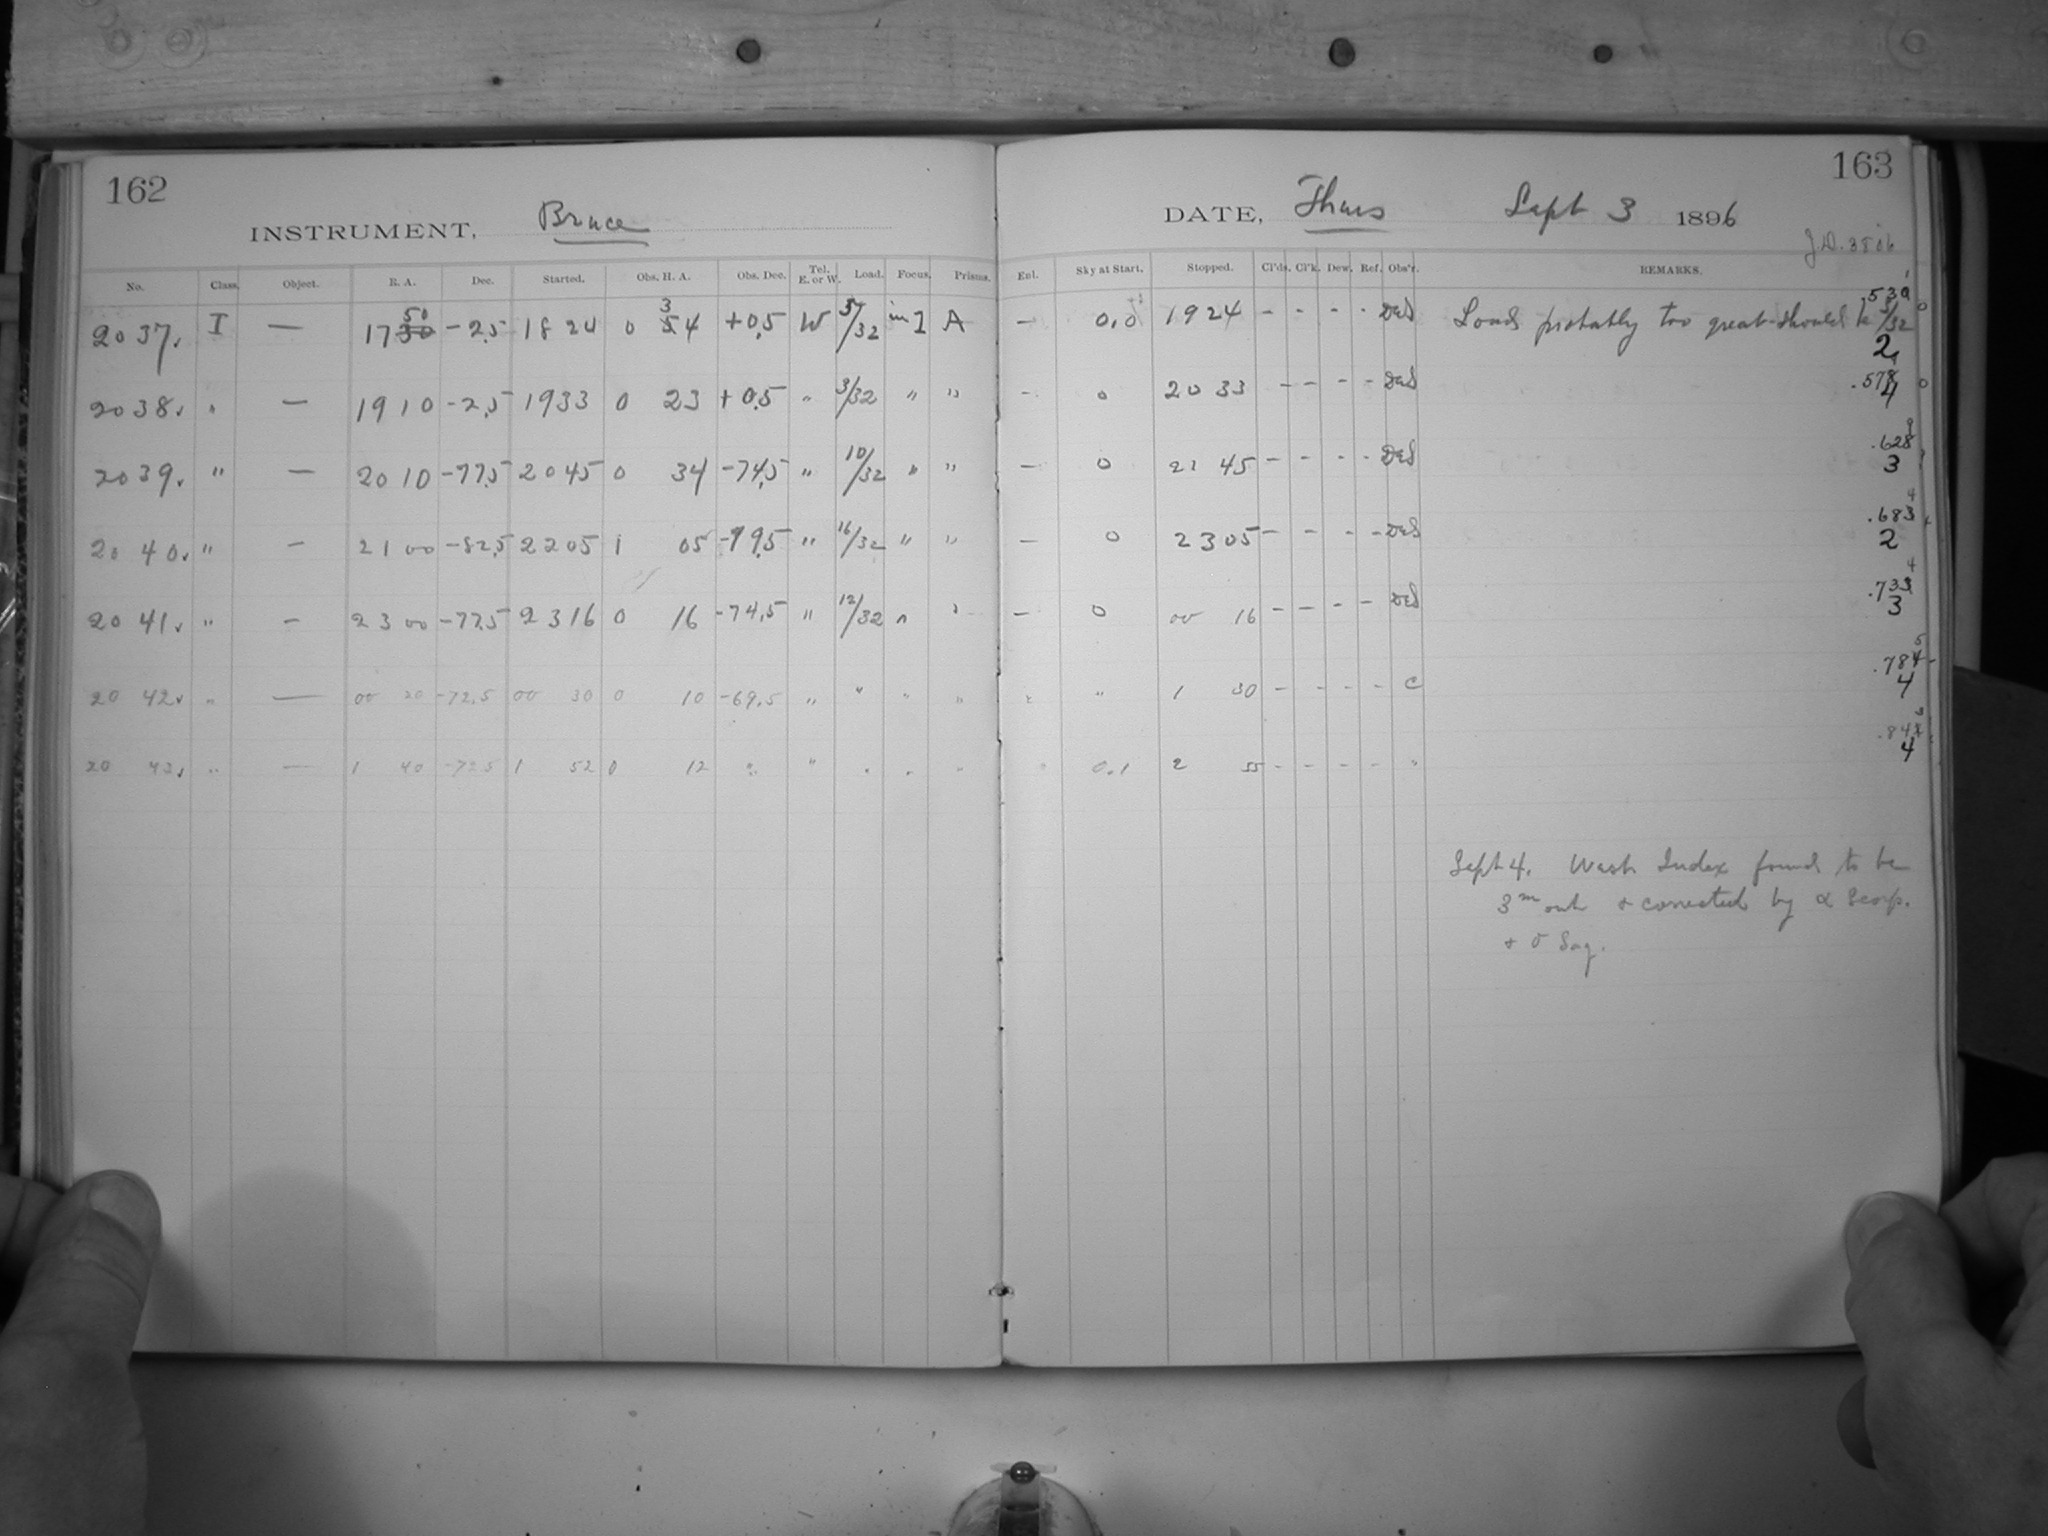 162
INSTRUMENT, Bruce
No. Class. Object. R. A. Dec. Started. Obs. H. A. Obs. Dec. Tel. E. or W. Load. Focus. Prisms.
2037. I — 17 30 50 -2.5 18 24 0 54 3 +0.5 W 5/32 in I A
2038. " — 19 10 -2.5 19 33 0 23 +0.5 " 3/32 " "
2039. " — 20 10 -77.5 20 45 0 34 -74.5 " 10/32 " "
2040. " — 21 00 -82.5 22 05 1 05 -79.5 " 16/32 " "
2041. " — 23 00 -77.5 23 16 0 16 -74.5 " 12/32 " "
20 42. " — 00 20 -72.5 00 30 0 10 -69.5 " " " "
20 43. " — 1 40 -72.5 1 52 0 12 " " " " "
163
DATE, Thurs Sept 3 1896
J.D. 3806
Enl. Sky at Start. Stopped. Cl'ds. Cl'k. Dew. Ref. Obs'r. REMARKS.
— 0.0 19 24 - - - - DeS Load probably too great-should be 3/32 .530 2
— 0 20 33 - - - - DeS .578 4
— 0 21 45 - - - - DeS .628 3
— 0 23 05 - - - - DeS .683 2
— 0 00 16 - - - - DeS .733 3
" " 1 30 - - - - C .784 4
" 0.1 2 55 - - - - " 4
Sept 4. West Index found to be
3m out & corrected by α Scorp.
& σ Sag.